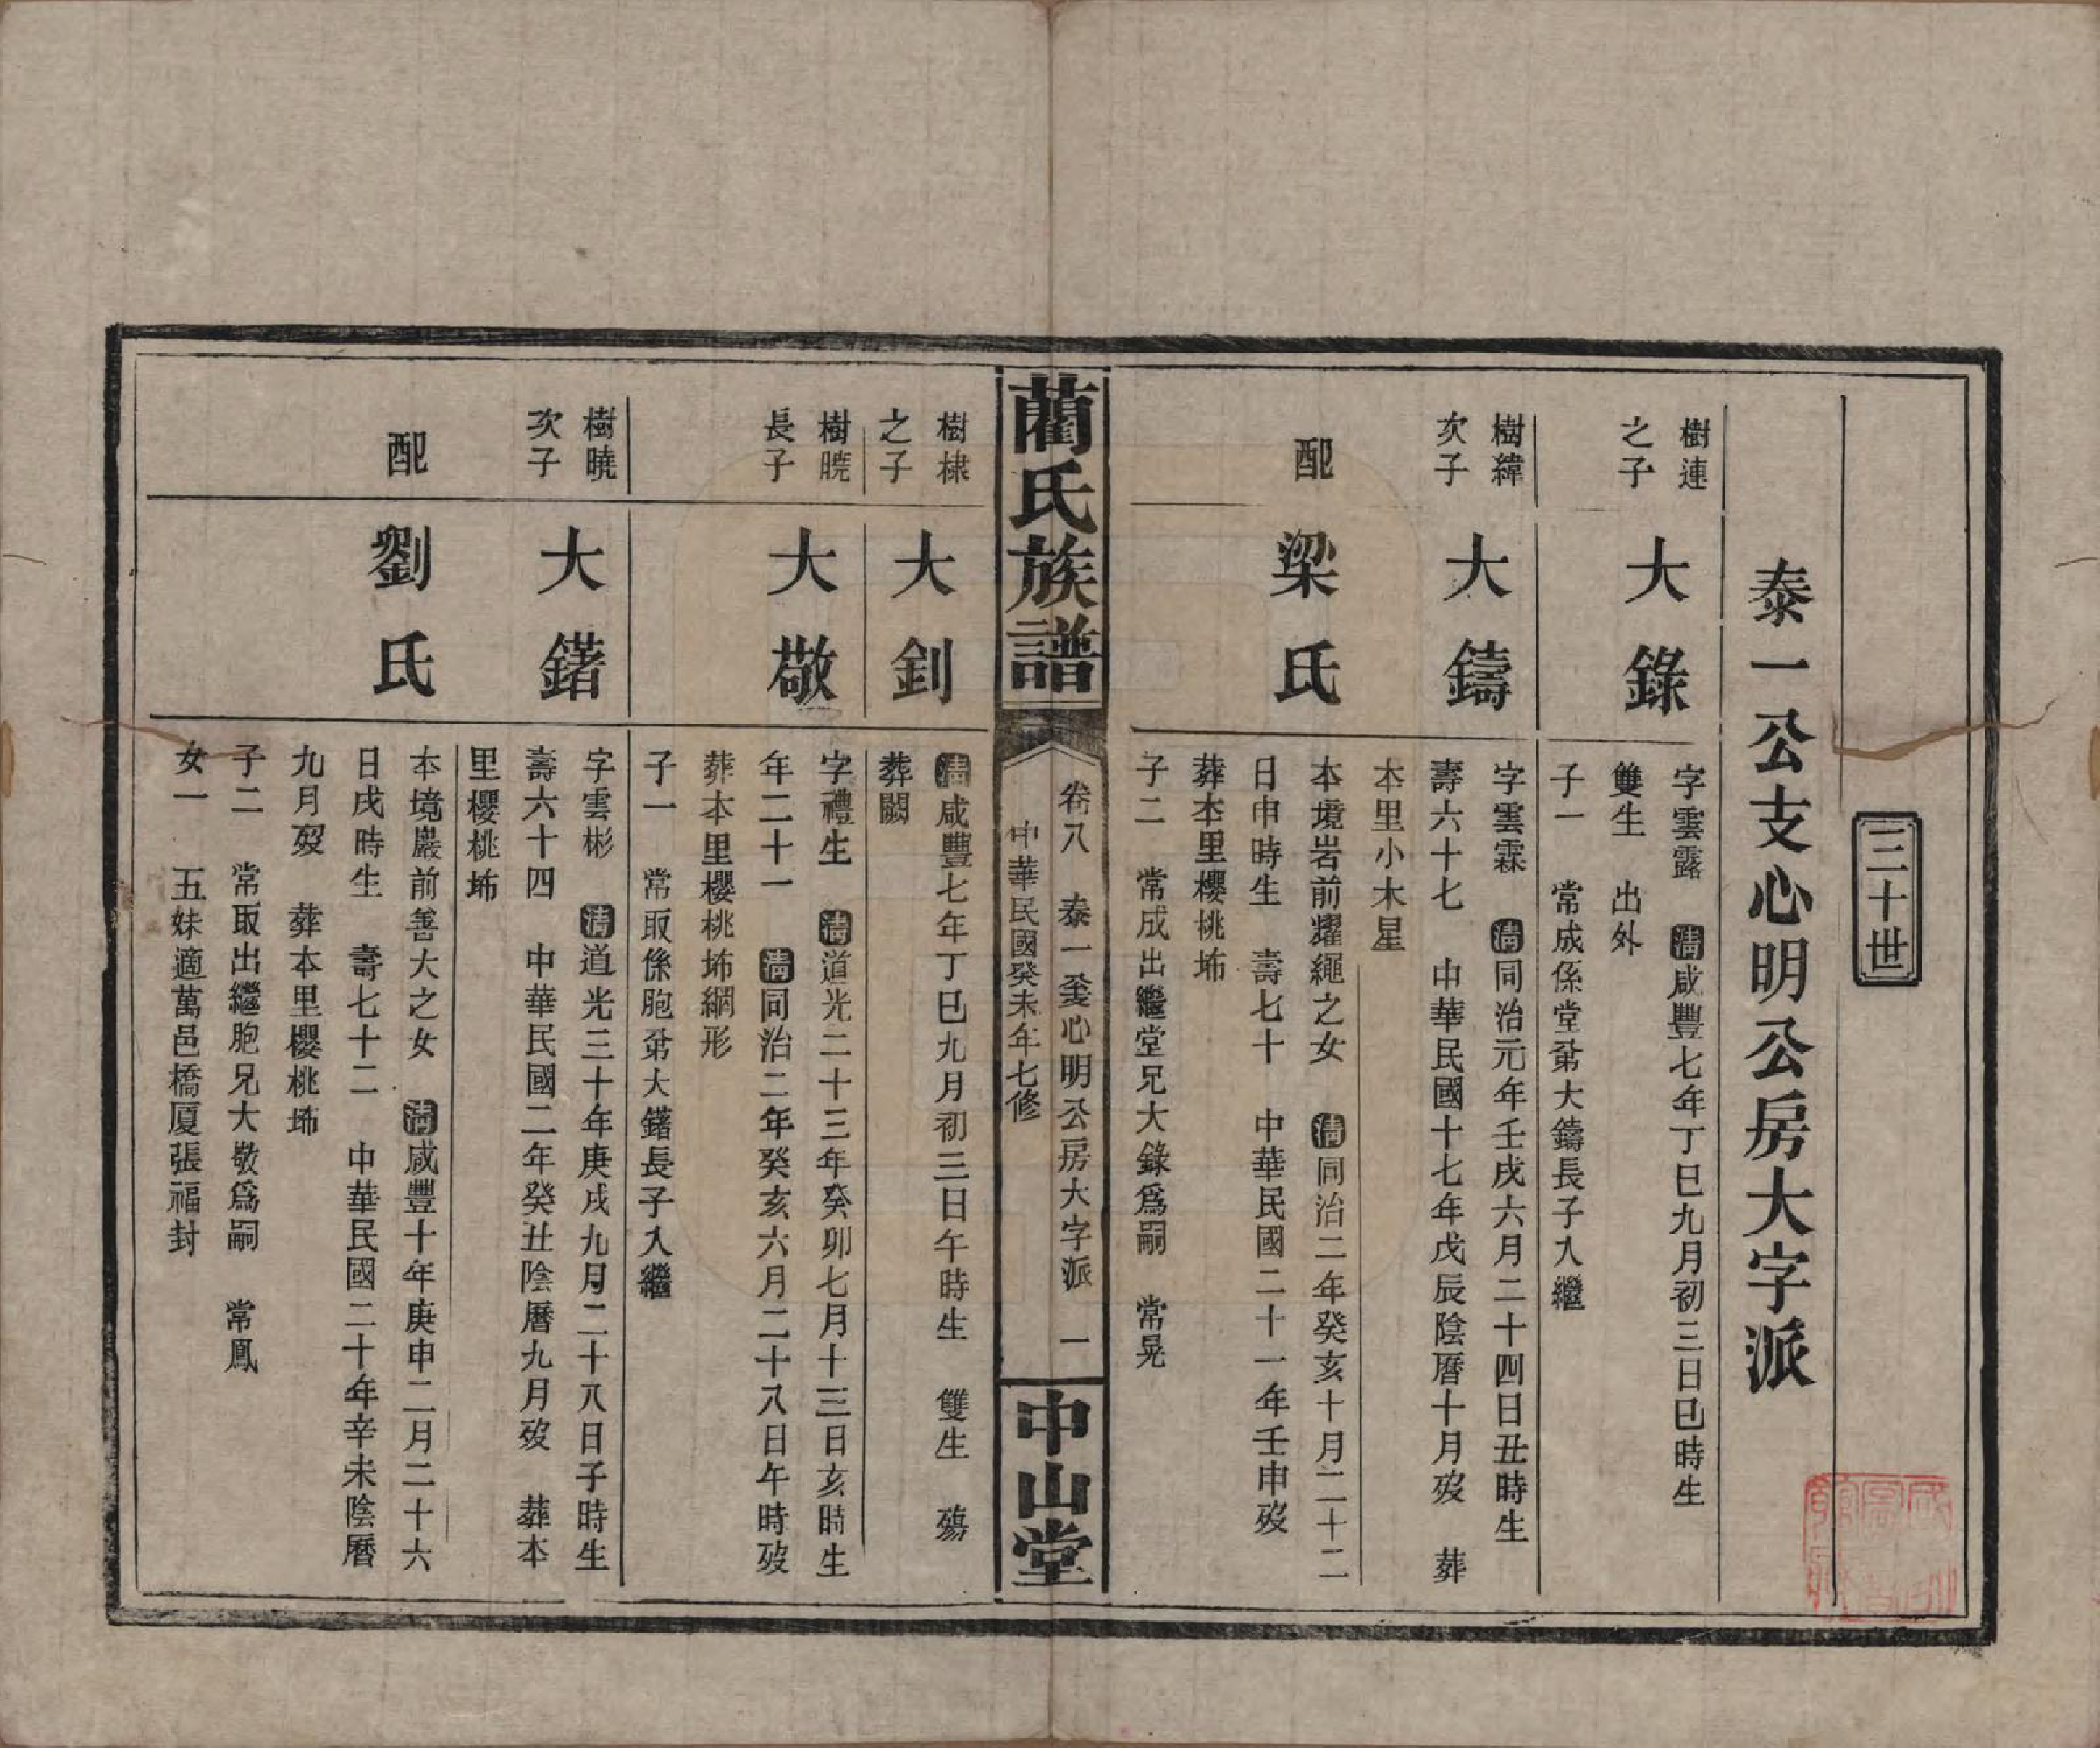 三十世
泰一公支心明公房大字派
樹連
之子
大錄
字雲露　清咸豐七年丁巳九月初三日巳時生
雙生　出外
子一　常成係堂弟大鑄長子入繼
樹緯
次子
大鑄
字雲霖　清同治元年壬戌六月二十四日丑時生
壽六十七　中華民國十七年戊辰陰曆十月歿　葬
本里小木星
配
梁氏
本境岩前耀繩之女　清同治二年癸亥十月二十二
日申時生　壽七十　中華民國二十一年壬申歿
葬本里櫻桃㘵
子二　常成出繼堂兄大錄爲嗣　常晃
藺氏族譜
卷八　泰一公支心明公房大字派　一
中華民國癸未年七修
中山堂
樹棣
之子
大釗
清咸豐七年丁巳九月初三日午時生　雙生　殤
葬闕
樹曉
長子
大敬
字禮生　清道光二十三年癸卯七月十三日亥時生
年二十一　清同治二年癸亥六月二十八日午時歿
葬本里櫻桃㘵網形
子一　常取係胞弟大鐯長子入繼
樹曉
次子
大鐯
字雲彬　清道光三十年庚戌九月二十八日子時生
壽六十四　中華民國二年癸丑陰曆九月歿　葬本
里櫻桃㘵
配
劉氏
本境巖前善大之女　清咸豐十年庚申二月二十六
日戌時生　壽七十二　中華民國二十年辛未陰曆
九月歿　葬本里櫻桃㘵
子二　常取出繼胞兄大敬爲嗣　常鳳
女一　五妹適萬邑橋厦張福封